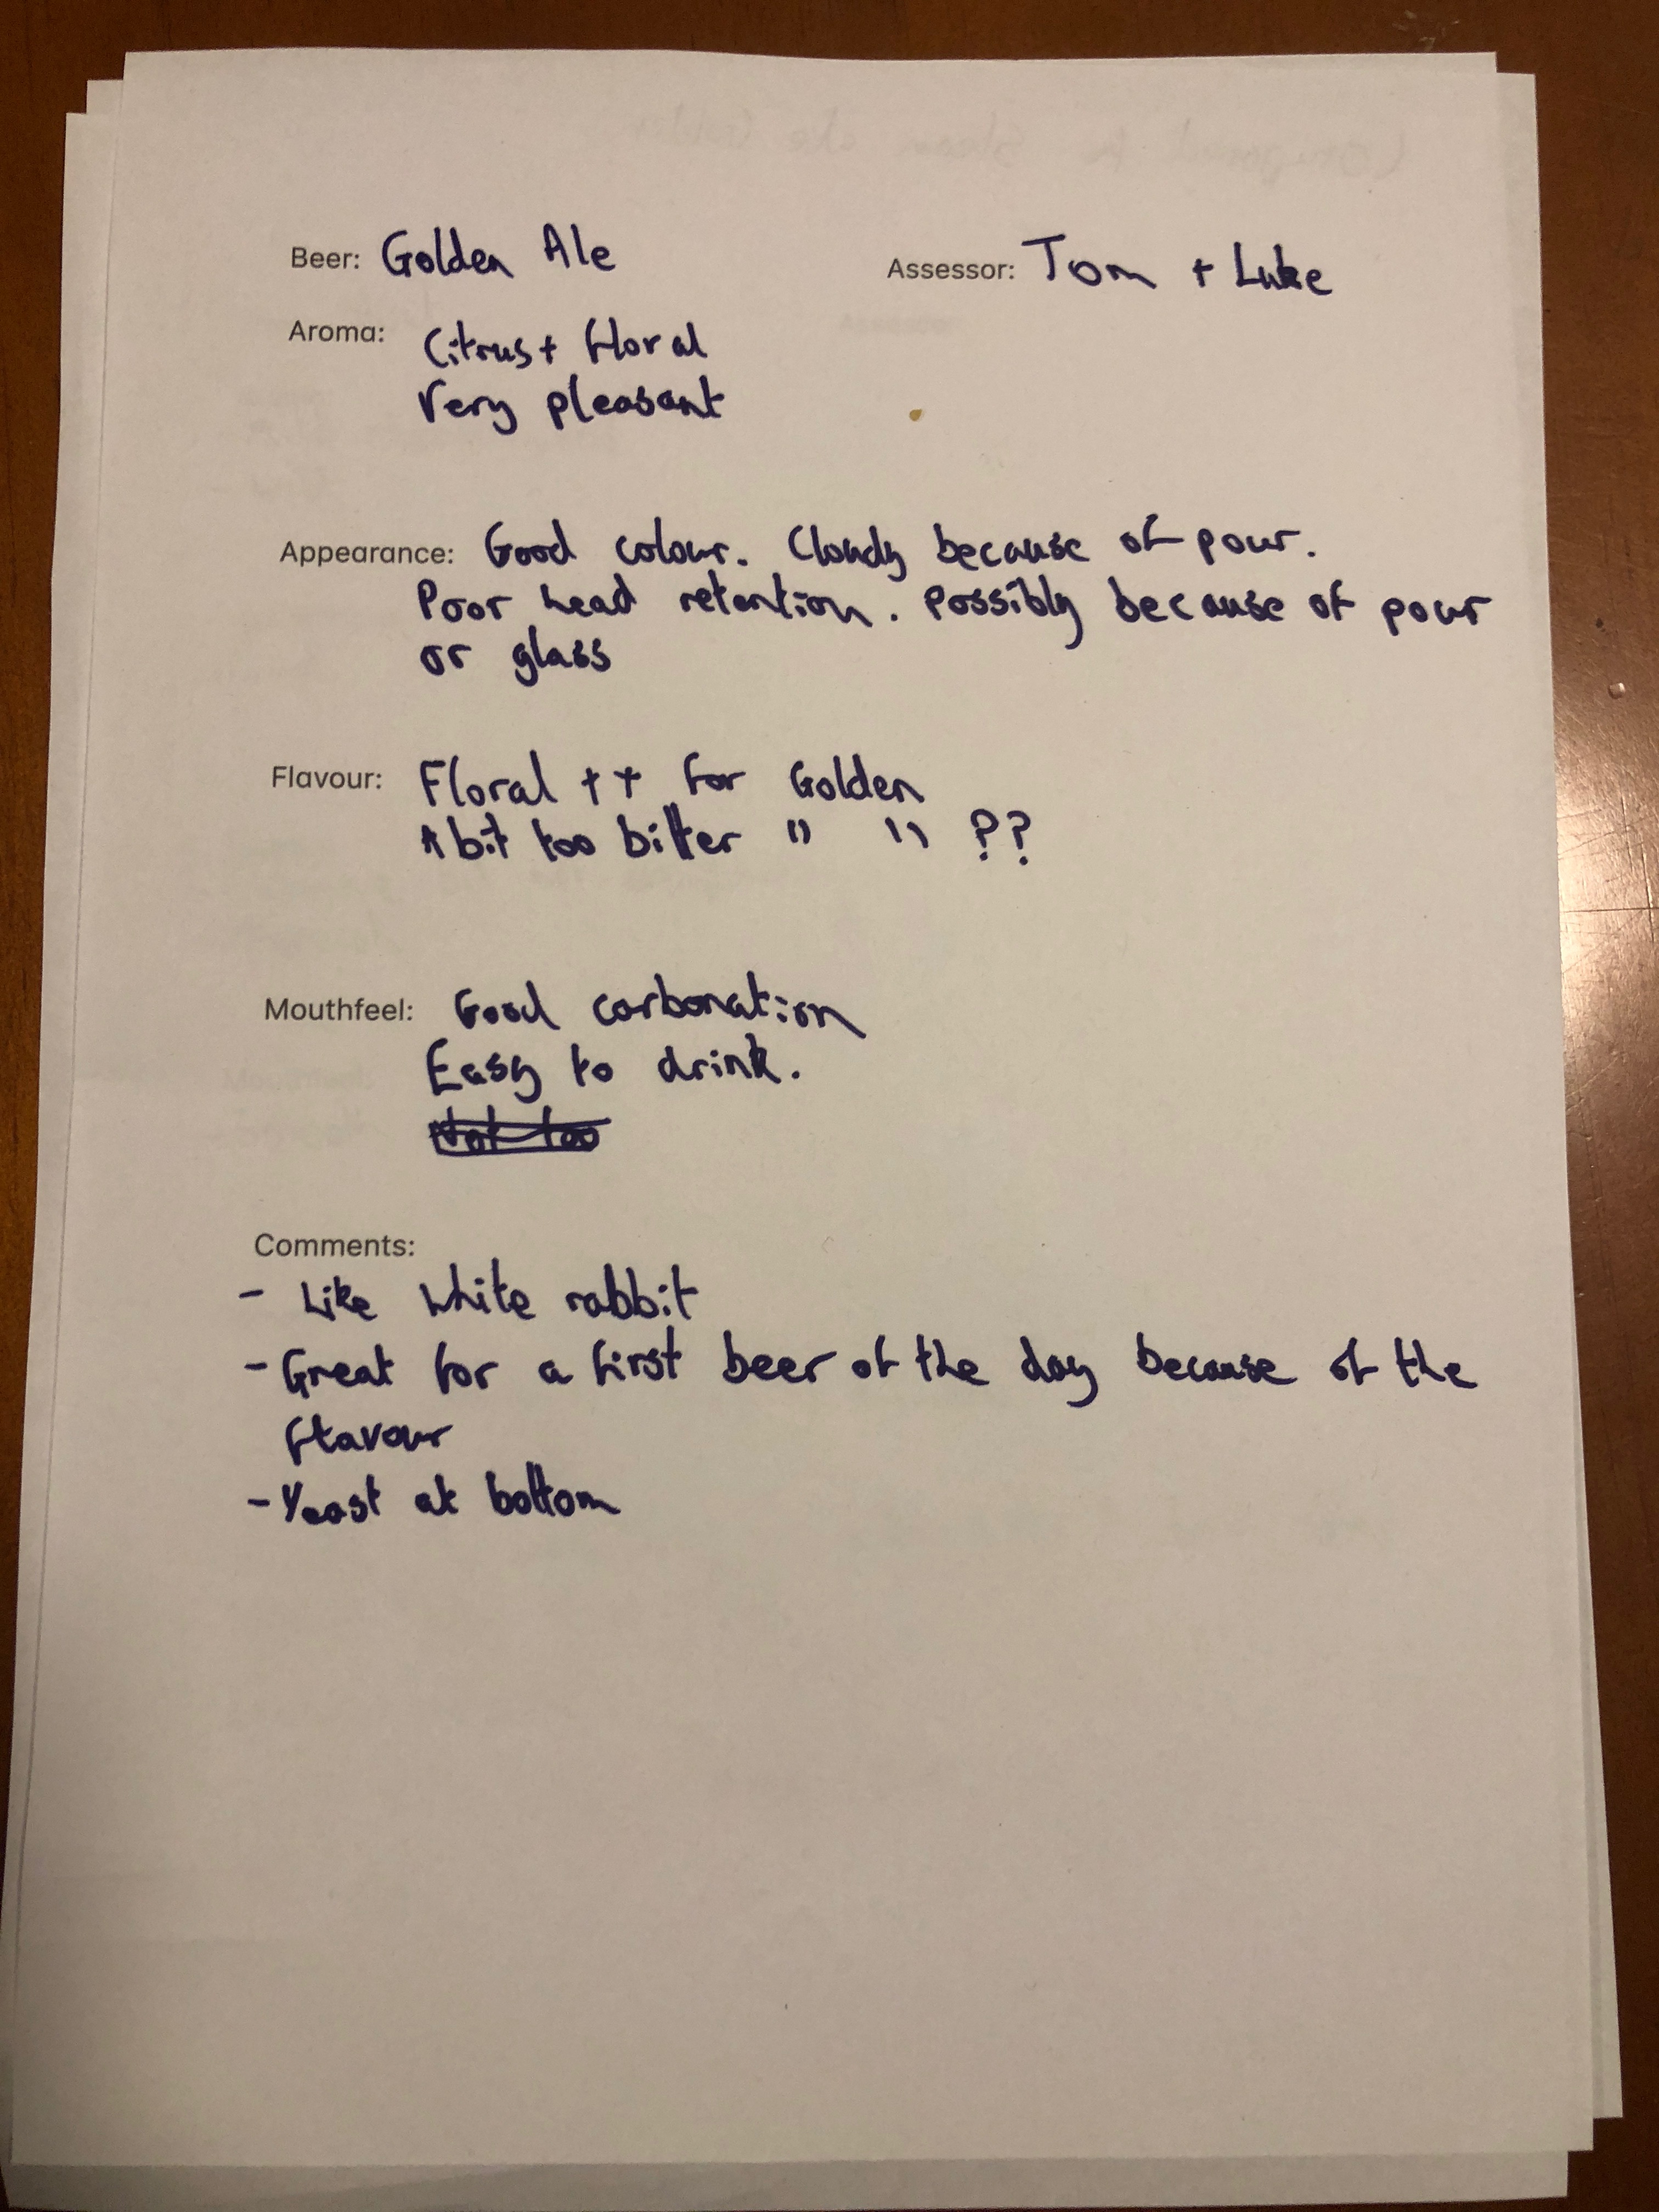 Beer: Golden Ale Assessor: Tom + Luke
Aroma: Citrus + floral
Very pleasant
Appearance: Good colour. Cloudy because of pour.
Poor head retention. Possibly because of pour
or glass
Flavour: Floral ++ for Golden
A bit too bitter " " ??
Mouthfeel: Good carbonation
Easy to drink.
Not too
Comments:
- Like white rabbit
- Great for a first beer of the day because of the
flavour
- Yeast at bottom